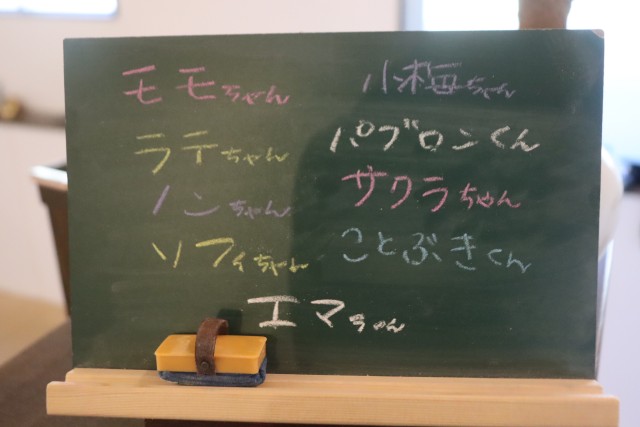 モモちゃん
小梅ちゃん
ラテちゃん
パブロンくん
ノンちゃん
サクラちゃん
ソフィちゃん
ことぶきくん
エマちゃん